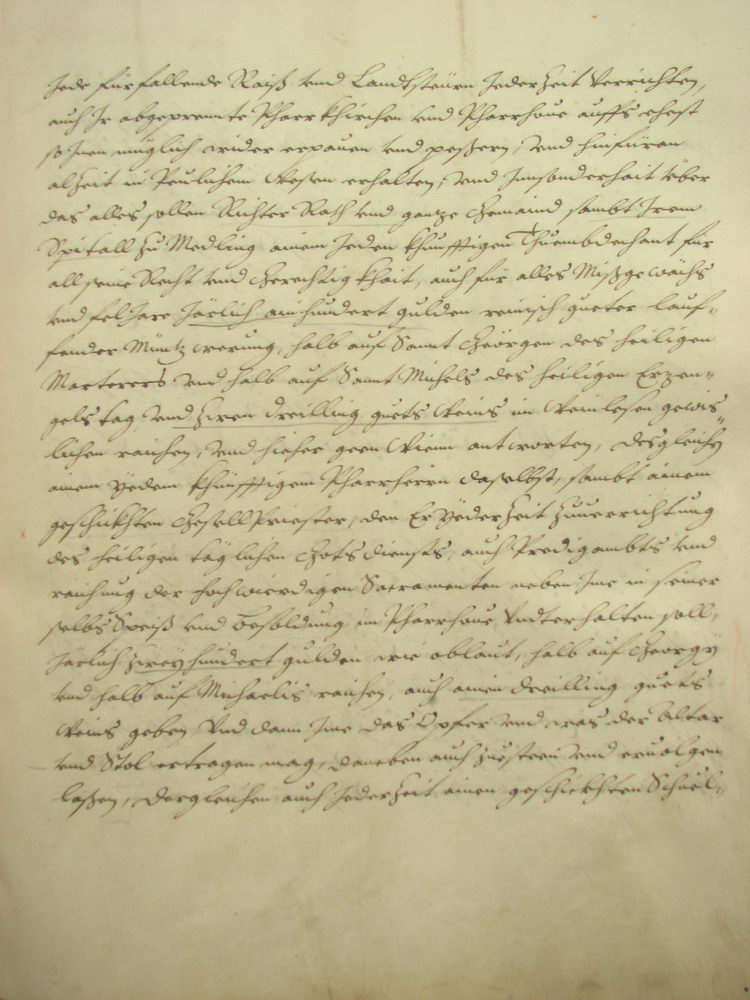 Jede fürfallende Raiß vnd Landtsteürn Jederzeit Verrichten,
auch Ir abgeprennte Pharrkhirchen vnd Pharrhoue auffs ehest
so Inen müglich wider erpauen vnd peßern, vnd hinfüran
alzeit in Peulichem Wesen erhalten, vnd Innsonderhait Über
das alles sollen Richter Rath vnd gantze Gemaind sambt Irem
Spitall zu Medling ainem Jeden khünfftigen Thuembdechant für
all seine Recht vnd Gerechtigkhait, auch für alles Mißgewächs
vnd feljare Järlich ainhundert gulden reinisch gueter lauf-
fender Müntz werung, halb auf Sannt Geörgen des heiligen
Marterers vnd halb auf Sannt Michels des heiligen Erzen-
gels tag, vnd zwen dreilling guets Weins im Weinlesen gewis-
lichen raichen, vnd hieher geen Wienn antworten, desgleichen
ainem yedem khünfftigem Pharrherrn daselbst, sambt ainem
geschickhten Gesellpriester, den Er Yederzeit zuuerrichtung
des heiligen täglichen Gotsdiensts, auch Predigambts vnd
raichung der hochwierdigen Sacramenten neben Ime in seiner
selbs Speiß vnd besoldung im Pharrhoue Vndterhalten soll,
Järlich zweyhundert gulden wie oblaut, halb auf Georgy
vnd halb auf Michaelis raichen, auch ainen dreilling guets
Weins geben, Vnd dann Ime das Opfer vnd was der Altar
vnd Stol ertragen mag, daneben auch zuesteen vnd eruolgen
laßen, Dergleichen auch Jederzeit ainen geschickhten Schuel-